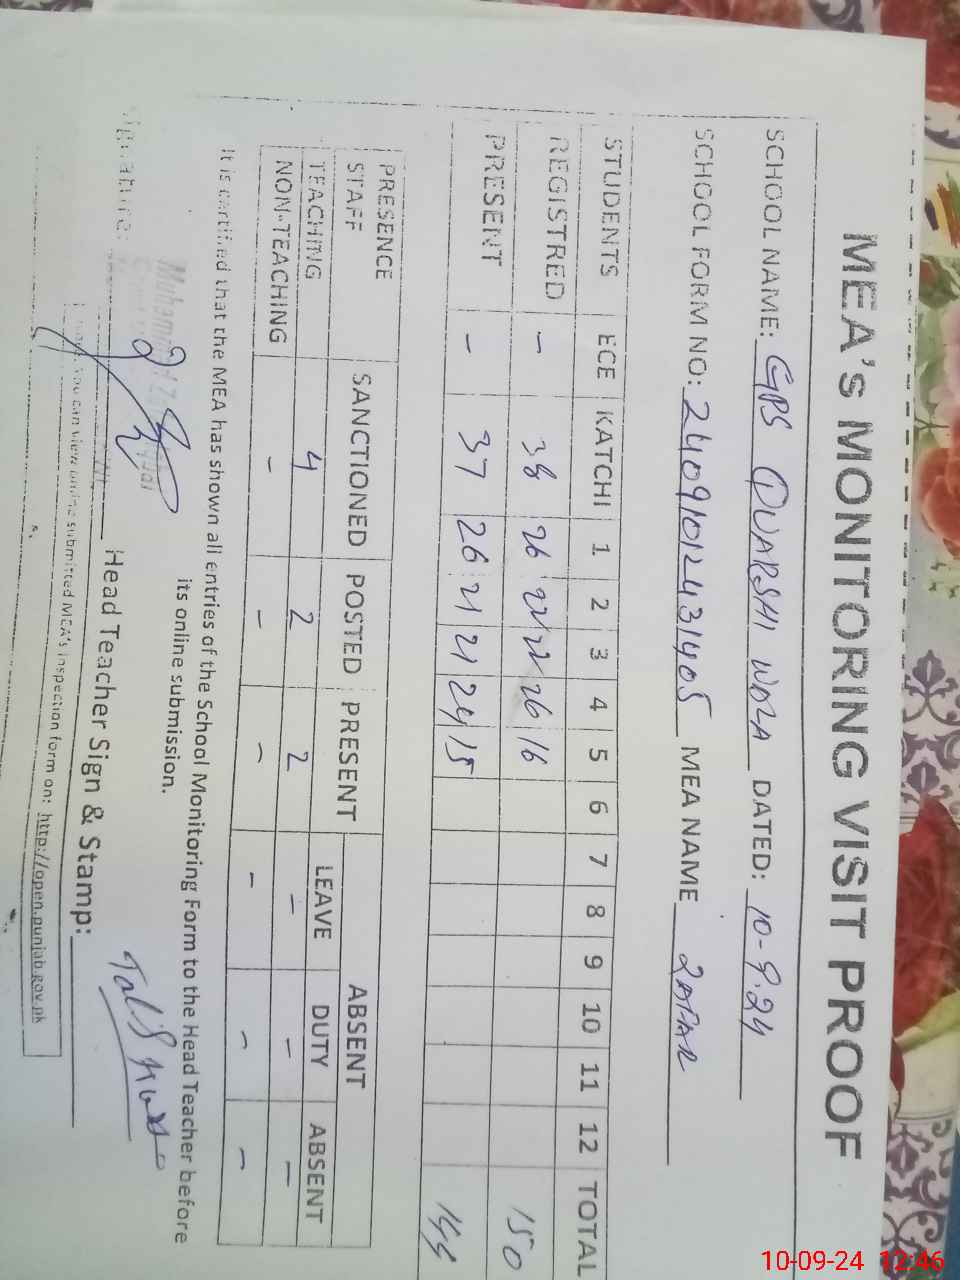 MEA's MONITORING VISIT PROOF
SCHOOL NAME: GPS QUARSHI WALA DATED: 10-9.24
SCHOOL FORM NO: 24091012431405 MEA NAME ZAFAR
STUDENTS ECE KATCHI 1 2 3 4 5 6 7 8 9 10 11 12 TOTAL
REGISTRED - 38 26 22 22 26 16 150
PRESENT - 37 26 21 21 24 15 144
PRESENCE
STAFF SANCTIONED POSTED PRESENT ABSENT
LEAVE DUTY ABSENT
TEACHING 4 2 2 - - -
NON-TEACHING - - - - - -
It is certified that the MEA has shown all entries of the School Monitoring Form to the Head Teacher before
its online submission.
Signature: Head Teacher Sign & Stamp:
You can view online submitted MEA's inspection form on: http://open.punjab.gov.pk
10-09-24 12:46